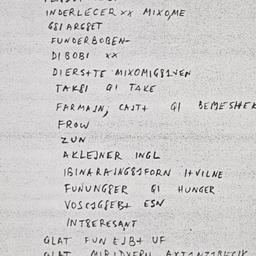 INDERLECER xx MIXOME
G8IARGSET
FUNDERBOBEN
DIBOBI xx
DIERSTTE MIXOMIG81VEN
TAK8I GI TAKE
FARMAJN, CAJT+ GI BEMESHEK
FROW
ZUN
A KLEJNER INGL
IBINARAINGSJFORN I+VILNE
FUNUNG8ER GI HUNGER
ESN
INT8ERESANT
GLAT FUN EJB+ UF
GLAT